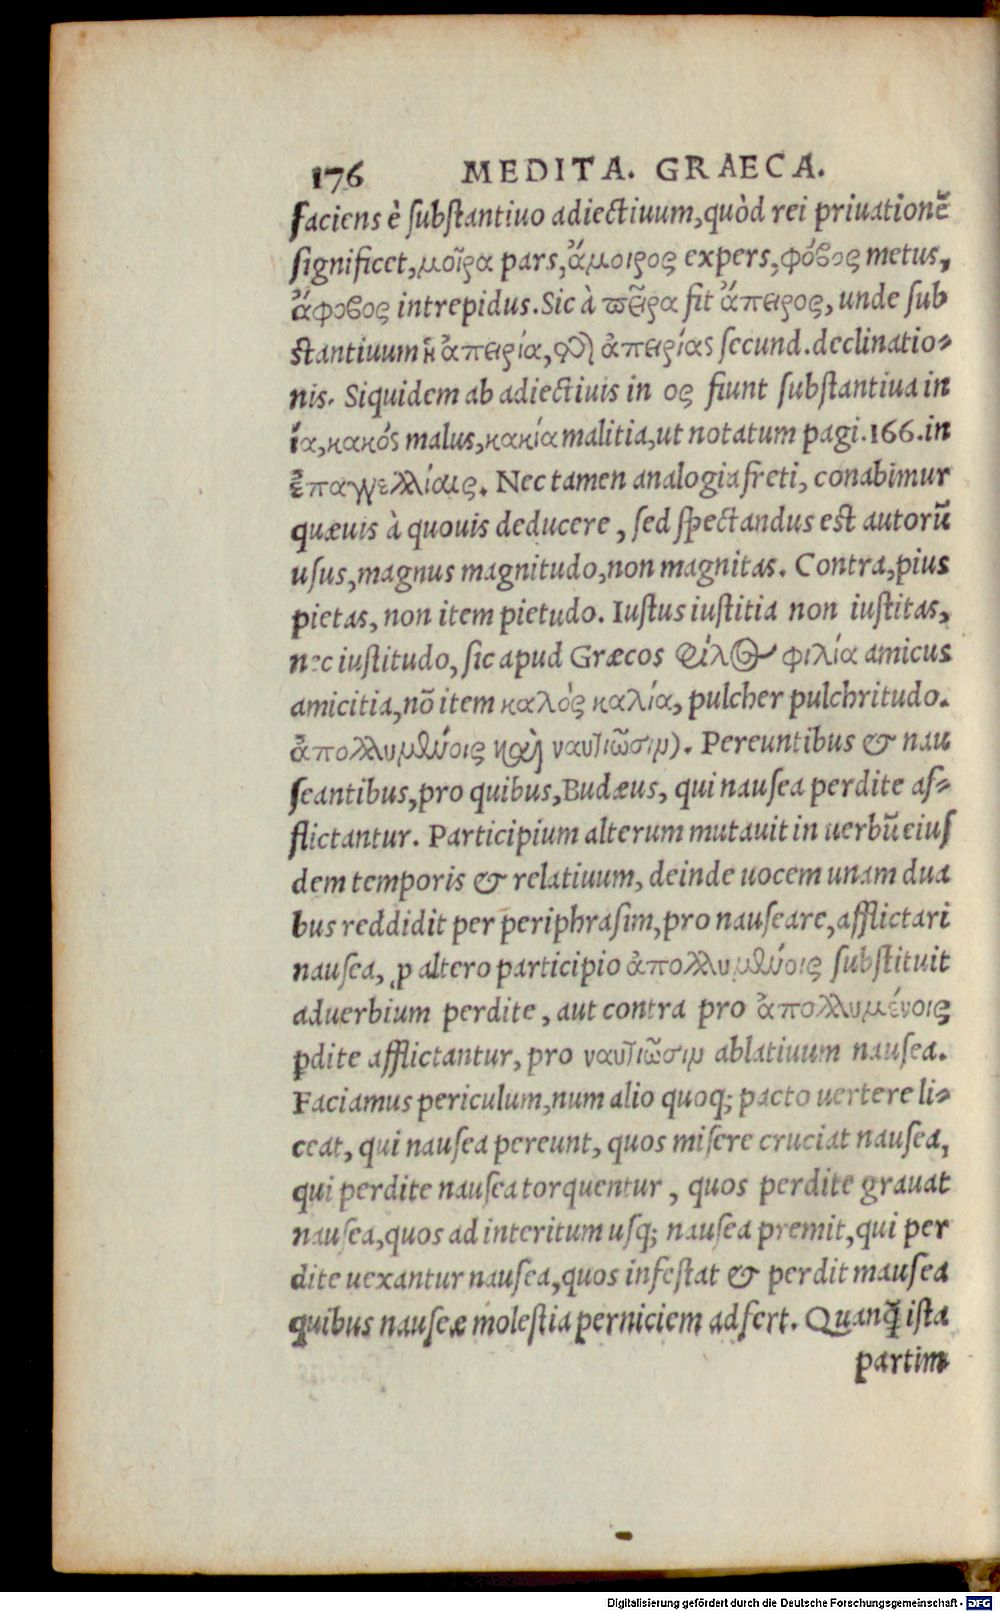 176 MEDITA. GRAECA.
faciens è substantiuo adiectiuum, quòd rei priuationẽ
significet, μοῖρα pars, ἄμοιρος expers, φόβος metus,
ἄφοβος intrepidus. Sic à πεῖρα fit ἄπειρος, unde sub
stantiuum ἡ ἀπειρία, τῆς ἀπειρίας secund. declinatio-
nis. Siquidem ab adiectiuis in ος fiunt substantiua in
ία, κακός malus, κακία malitia, ut notatum pagi. 166. in
ἐπαγγελλίαις. Nec tamen analogia freti, conabimur
quæuis à quouis deducere, sed spectandus est autorũ
usus, magnus magnitudo, non magnitas. Contra, pius
pietas, non item pietudo. Iustus iustitia non iustitas,
nec iustitudo, sic apud Græcos φίλος φιλία amicus
amicitia, nõ item καλὸς καλία, pulcher pulchritudo.
ἀπολλυμένοις καὶ ναυτιῶσιμ). Pereuntibus & nau
seantibus, pro quibus, Budæus, qui nausea perdite af-
flictantur. Participium alterum mutauit in uerbũ eius
dem temporis & relatiuum, deinde uocem unam dua
bus reddidit per periphrasim, pro nauseare, afflictari
nausea, ꝓ altero participio ἀπολλυμένοις substituit
aduerbium perdite, aut contra pro ἀπολλυμένοις
ꝑdite afflictantur, pro ναυτιῶσιμ ablatiuum nausea.
Faciamus periculum, num alio quoq; pacto uertere li-
ceat, qui nausea pereunt, quos misere cruciat nausea,
qui perdite nausea torquentur, quos perdite grauat
nausea, quos ad interitum usq; nausea premit, qui per
dite uexantur nausea, quos infestat & perdit mausea
quibus nauseæ molestia perniciem adfert. Quanq̃ ista
partim
Digitalisierung gefördert durch die Deutsche Forschungsgemeinschaft - DFG